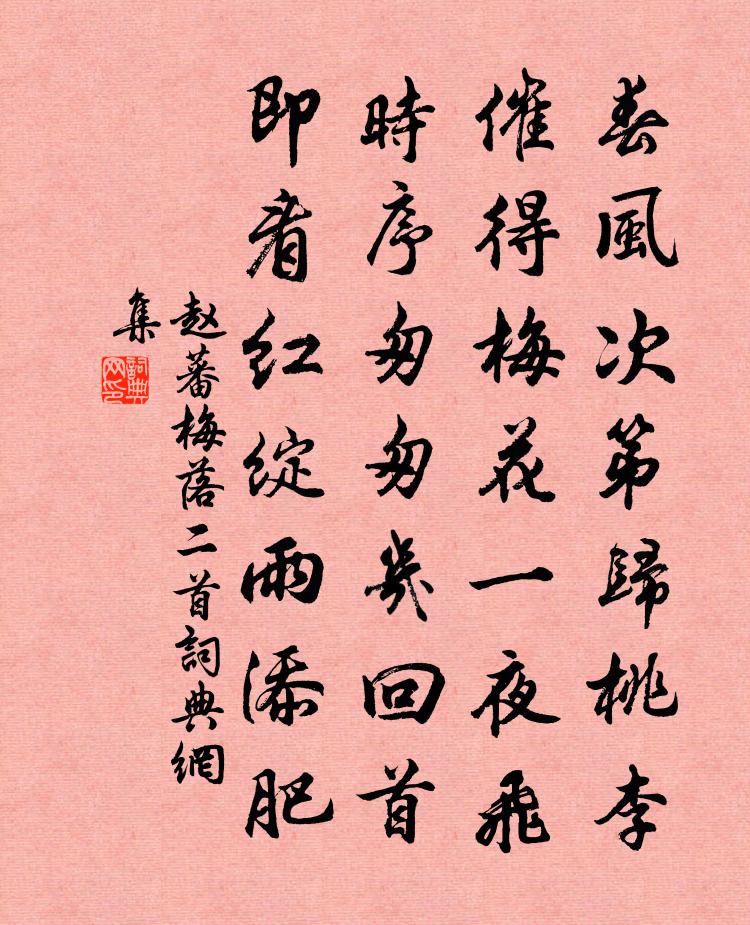 春風次第歸桃李
催得梅花一夜飛
時序匆匆幾回首
即看紅綻雨添肥
赵蕃梅落二首詞典網
集
詞典
网印